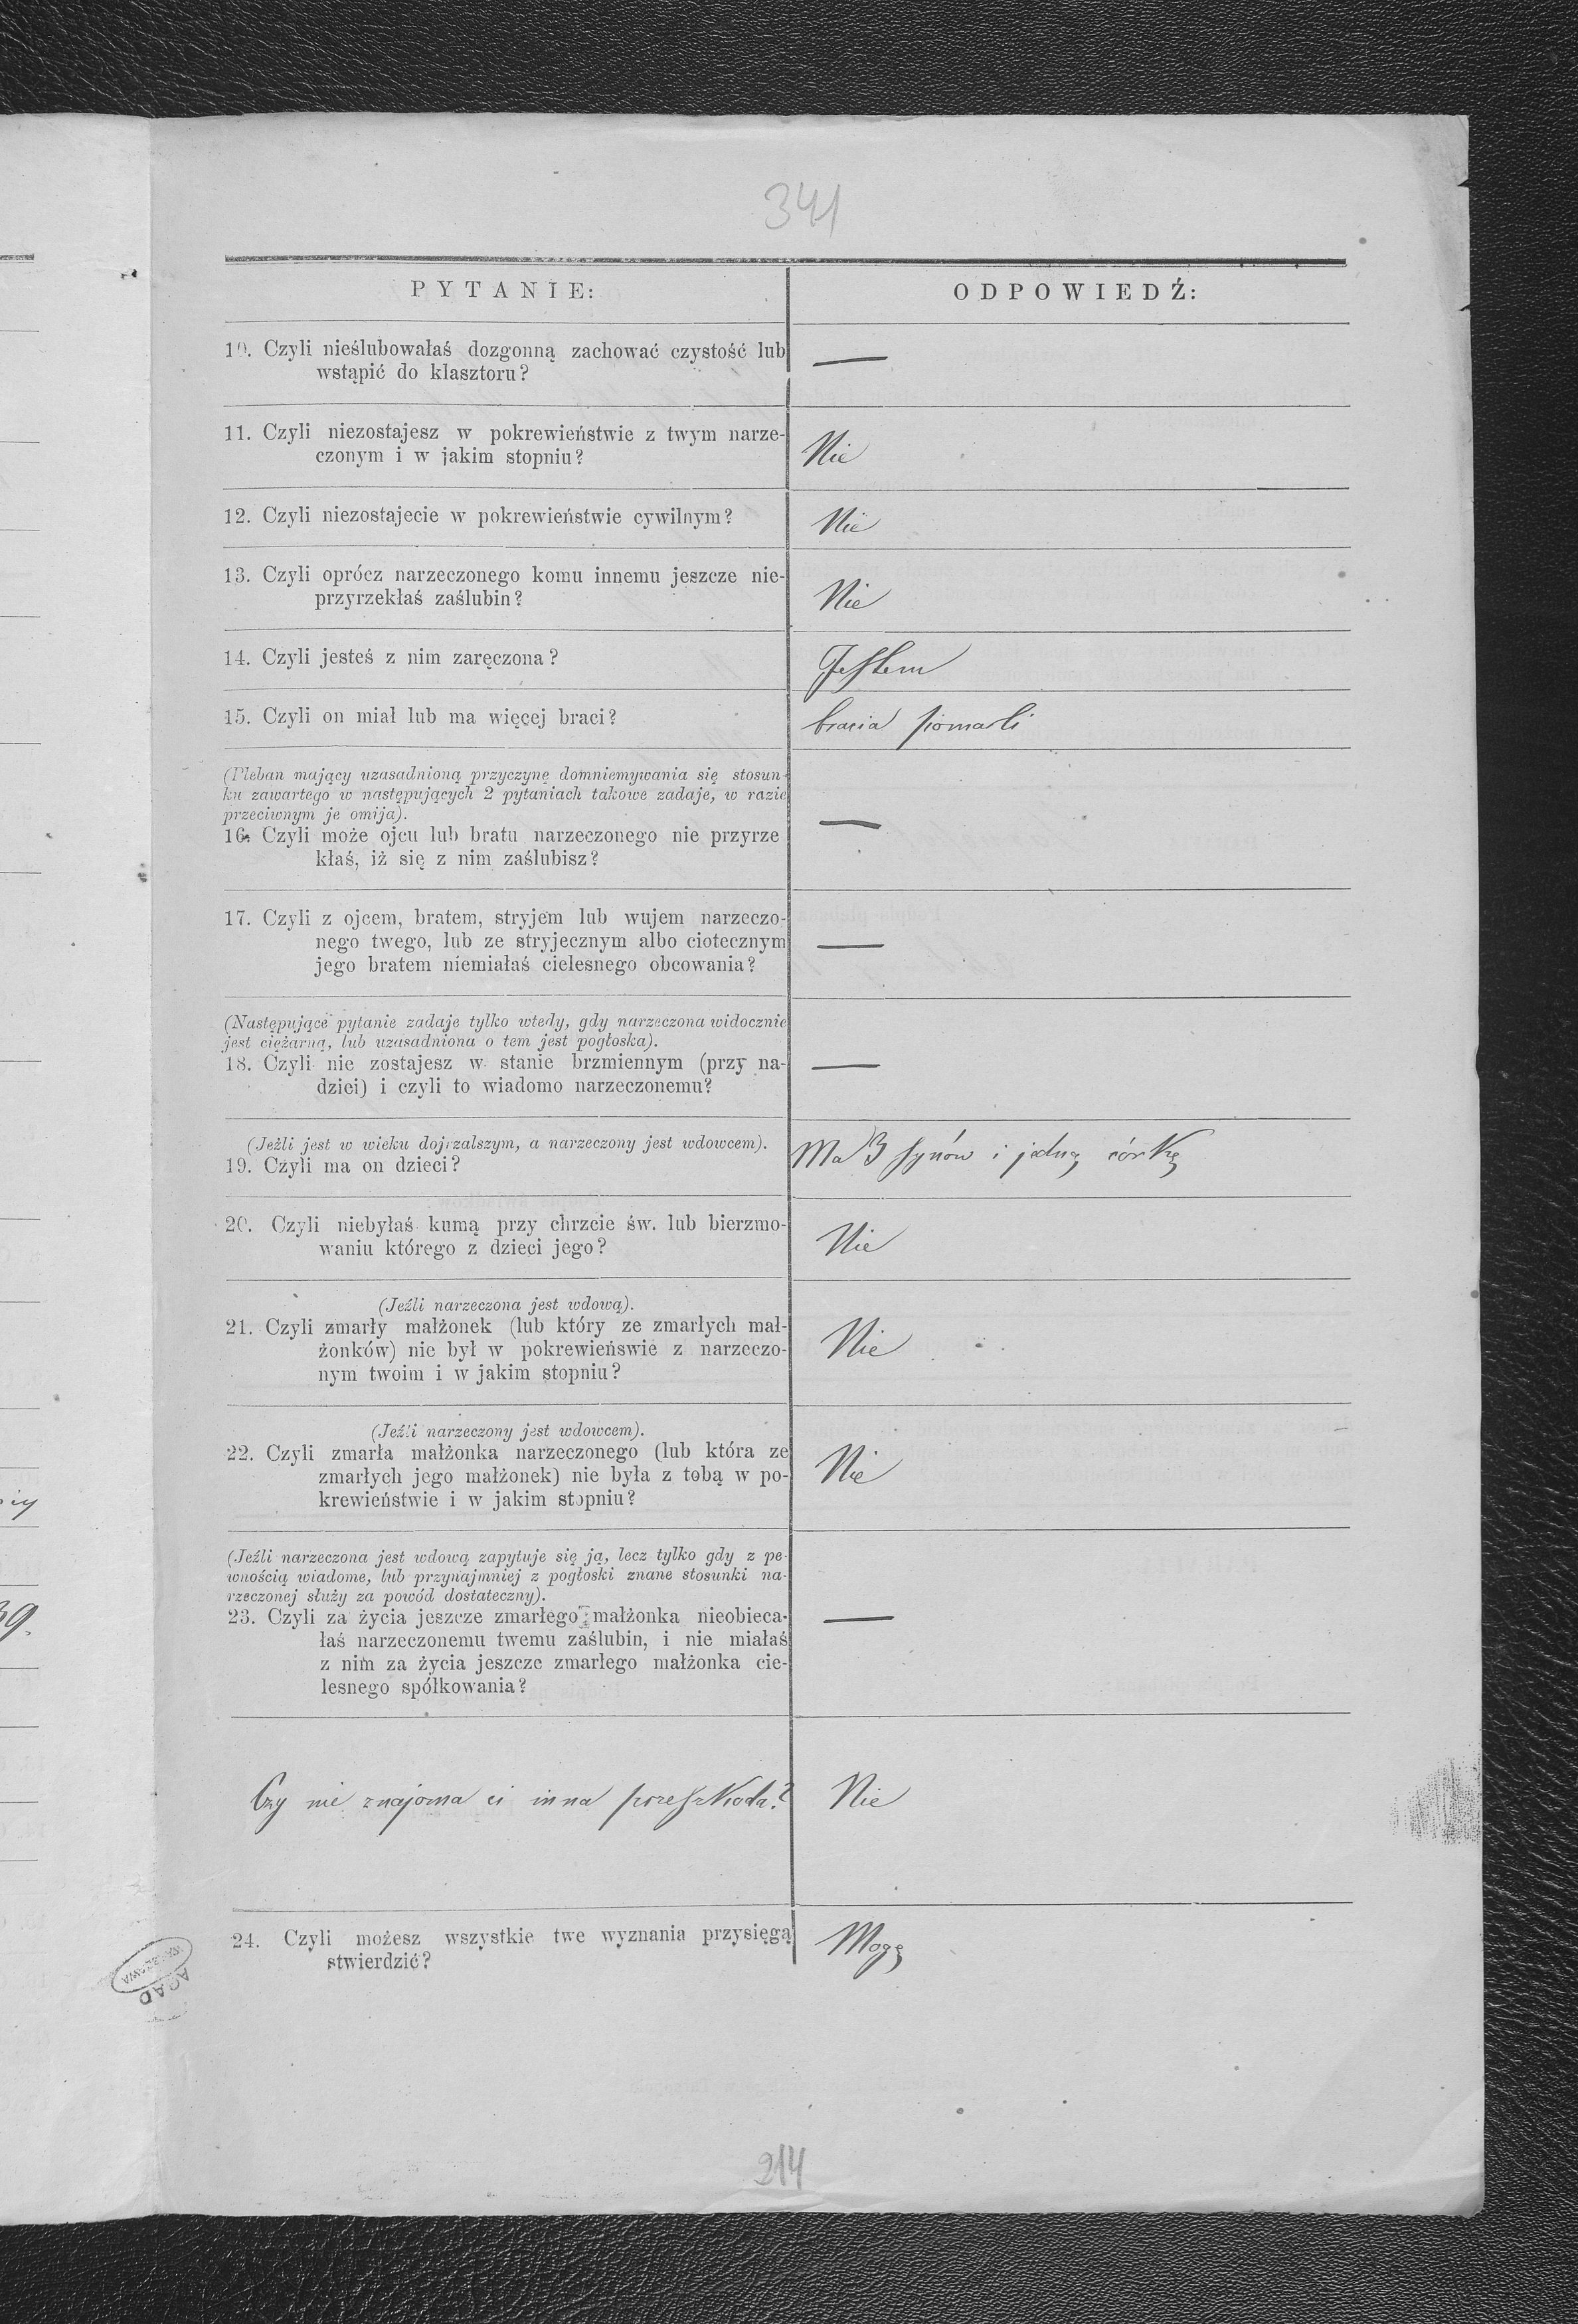 341
PYTANIE:
ODPOWIEDŹ:
10. Czyli nieślubowałaś dozgonną zachować czystość lub
wstąpić do klasztoru?
—
11. Czyli niezostajesz w pokrewieństwie z twym narze-
czonym i w jakim stopniu?
Nie
12. Czyli niezostajecie w pokrewieństwie cywilnym?
Nie
13. Czyli oprócz narzeczonego komu innemu jeszcze nie-
przyrzekłaś zaślubin?
Nie
14. Czyli jesteś z nim zaręczona?
Jestem
15. Czyli on miał lub ma więcej braci?
bracia pomarli
(Pleban mający uzasadnioną przyczynę domniemywania się stosun-
ku zawartego w następujących 2 pytaniach takowe zadaje, w razie
przeciwnym je omija).
16. Czyli może ojcu lub bratu narzeczonego nie przyrze
kłaś, iż się z nim zaślubisz?
—
17. Czyli z ojcem, bratem, stryjem lub wujem narzeczo-
nego twego, lub ze stryjecznym albo ciotecznym
jego bratem niemiałaś cielesnego obcowania?
—
(Następujące pytanie zadaje tylko wtedy, gdy narzeczona widocznie
jest ciężarną, lub uzasadniona o tem jest pogłoska).
18. Czyli nie zostajesz w stanie brzmiennym (przy na-
dziei) i czyli to wiadomo narzeczonemu?
—
(Jeźli jest w wieku dojrzalszym, a narzeczony jest wdowcem).
19. Czyli ma on dzieci?
Ma 3 synów i jedną córkę
20. Czyli niebyłaś kumą przy chrzcie św. lub bierzmo-
waniu którego z dzieci jego?
Nie
(Jeźli narzeczona jest wdową).
21. Czyli zmarły małżonek (lub który ze zmarłych mał-
żonków) nie był w pokrewieńswie z narzeczo-
nym twoim i w jakim stopniu?
Nie
(Jeźli narzeczony jest wdowcem).
22. Czyli zmarła małżonka narzeczonego (lub która ze
zmarłych jego małżonek) nie była z tobą w po-
krewieństwie i w jakim stopniu?
Nie
(Jeźli narzeczona jest wdową zapytuje się ją, lecz tylko gdy z pe-
wnością wiadome, lub przynajmniej z pogłoski znane stosunki na-
rzeczonej służy za powód dostateczny).
23. Czyli za życia jeszcze zmarłego małżonka nieobieca-
łaś narzeczonemu twemu zaślubin, i nie miałaś
z nim za życia jeszcze zmarłego małżonka cie-
lesnego spółkowania?
—
Czy nie znajoma ci inna przeszkoda?
Nie
24. Czyli możesz wszystkie twe wyznania przysięgą
stwierdzić?
Mogę
AGAD
WARSZAWA
214